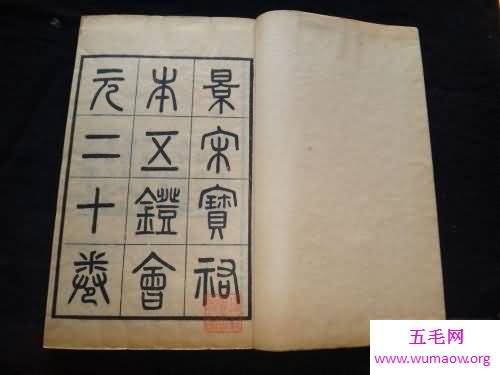 景宋寶祐
本五鐙會
元二十卷
五毛网
www.wumaow.org